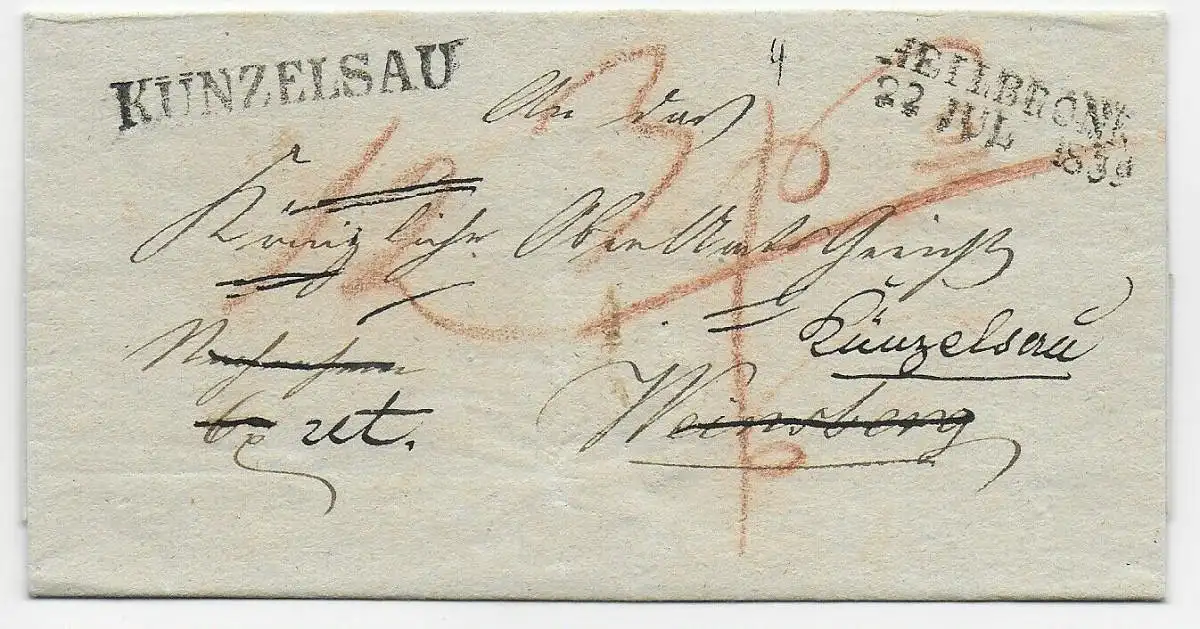 KUNZELSAU
HEILBRONN
22 JUL 1839
4
An das
Königliche Ober Amts Gericht
Künzelsau
Weinsberg
ret.
12
3